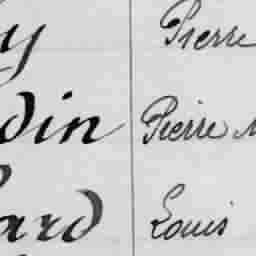 y Pierre
din Pierre
ard Louis